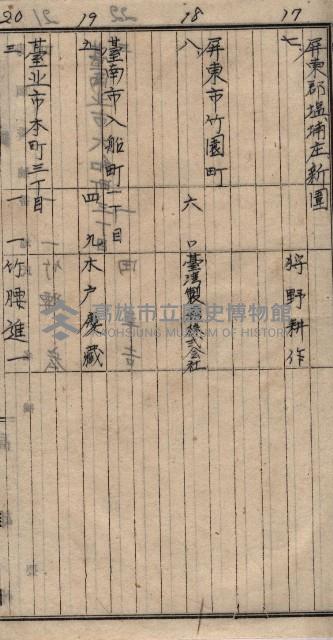 17
七、屏東郡塩埔庄新圍
狩野耕作
18
八、屏東市竹園町
六 口
臺湾製糖株式会社
19
九、臺南市入船町二丁目
四 九
木戸慶藏
20
三、臺北市本町三丁目
一 一
竹腰進一
22 21
高雄市立歷史博物館
KAOHSIUNG MUSEUM OF HISTORY